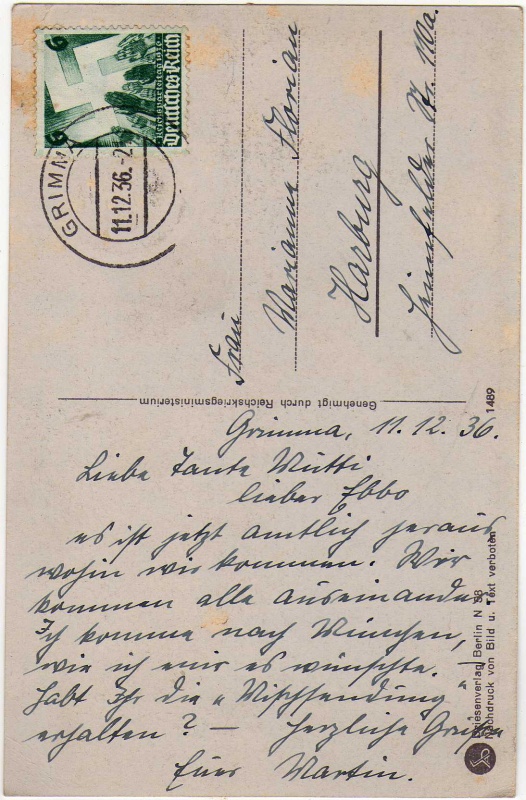 6 6
Reichsparteitag 1936
Deutsches Reich
GRIMMA
11.12.36.-2
Frau
Marianne Florian
Harburg
Heimfelder Str. 110a.
Genehmigt durch Reichskriegsministerium
1489
Berlin N 58
Nachdruck von Bild u. Text verboten
Grimma, 11. 12. 36.
Liebe Tante Mutti
lieber Ebbo
es ist jetzt amtlich heraus
wohin wir kommen. Wir
kommen alle auseinander
Ich komme nach München,
wie ich mir es wünschte.
Habt Ihr die „Mischsendung"
erhalten? — Herzliche Grüße
Euer Martin.